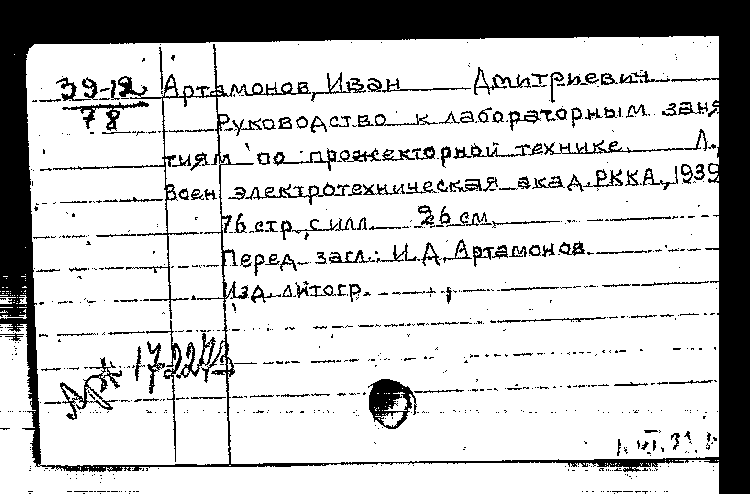 39-12
78
Артамонов, Иван Дмитриевич
Руководство к лабораторным заня
тиям по прожекторной технике. Л.,
Воен электротехническая акад. РККА., 1939
76 стр., с илл. 26 см.
Перед загл.: И. Д. Артамонов.
Изд. литогр.